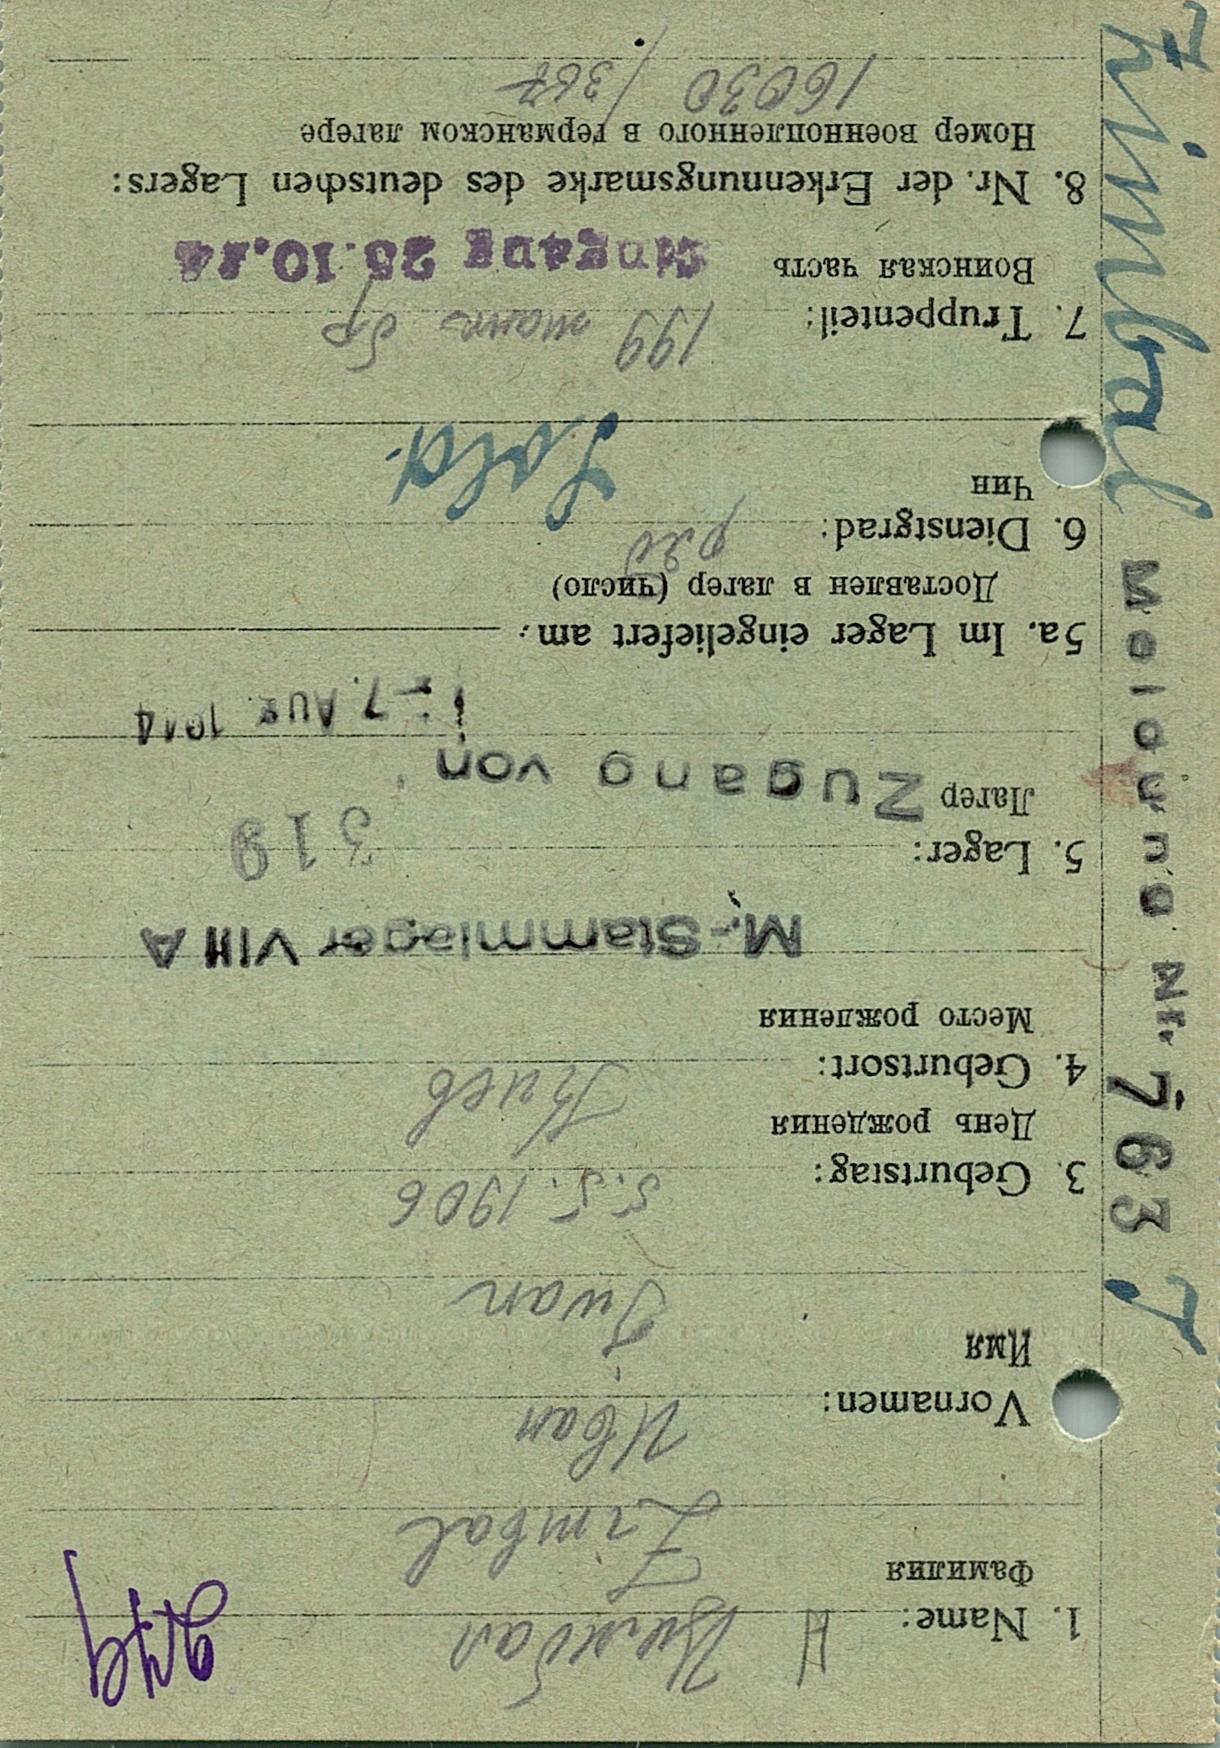 1. Name:
Цимбал
Фамилия
Zimbal
Иван
Vornamen:
Имя
Iwan
3. Geburtstag: 5.5.1906
День рождения
4. Geburtsort: Киев
Место рождения
M.-Stammlager VIII A
5. Lager: 319
Лагер Zugang von
- 7. Aug. 1944
5a. Im Lager eingeliefert am:
Доставлен в лагер (число)
6. Dienstgrad: ряд
Чин
Sold.
7. Truppenteil: 199
Воинская часть
Eingang 25.10.44
8. Nr. der Erkennungsmarke des deutschen Lagers:
Номер военнопленного в германском лагере
16030 / 367
Zimbal Meldung Nr. 763 J